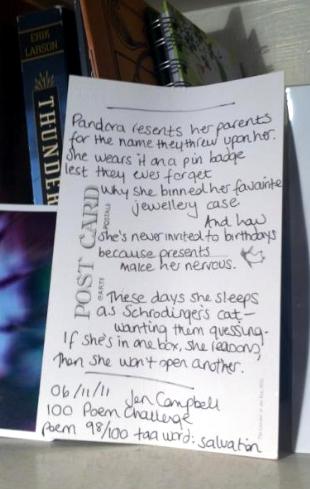 ERIK
LARSON
THUNDER
Pandora resents her parents
for the name they threw upon her.
She wears it on a pin badge
lest they ever forget
why she binned her favourite
jewellery case
And how
she's never invited to birthdays
because presents
make her nervous.
POST CARD
CARTE POSTALE
These days she sleeps
as Schrodinger's cat—
wanting them guessing.
If she's in one box, she reasons,
Then she won't open another.
06/11/11 Jen Campbell
100 Poem Challenge
Poem 98/100 tag word: salvation